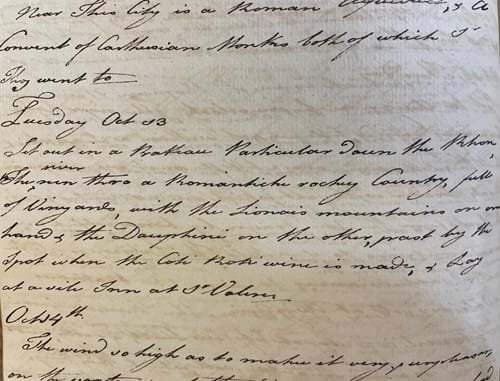 Near This City is a Roman Aqueduct, & a
Convent of Carthusian Monks both of which Sr
Thos went to
Tuesday Oct 13
Set out in a Batteau Particular down the Rhon,
river
The run thro a Romantiche rockey Country, full
of Vinyards, with the Lionais mountains on on
hand & the Dauphini on the other, past by the
Spot when the Coti Roti wine is made, & Lay
at a vile Inn at St Valier
Oct 14th
The wind so high as to make it very unpleasan
on the